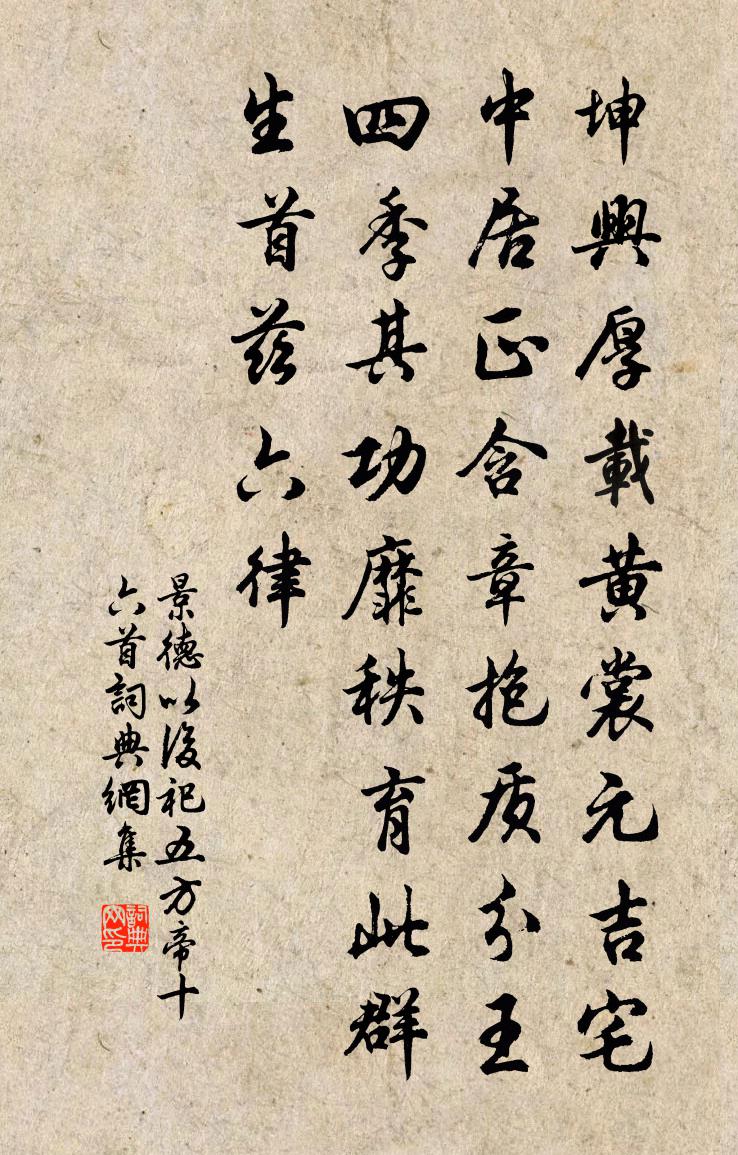 坤輿厚載黃裳元吉宅
中居正含章抱質分王
四季其功靡秩育此群
生首茲六律
景德以後祀五方帝十
六首詞典網集
詞典
網印